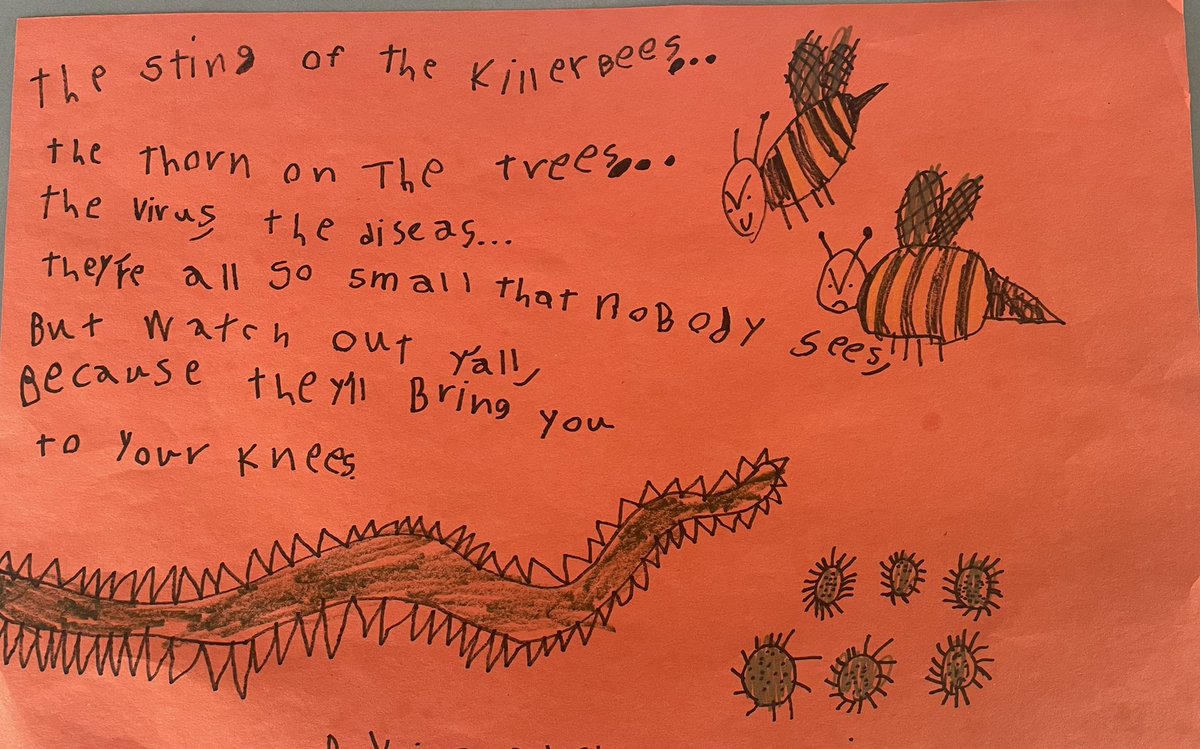 The sting of the Killer Bees...
the Thorn on The trees...
the virus the diseas...
they're all so small that noBody sees
But watch out y'all,
Because they'll Bring you
to your knees